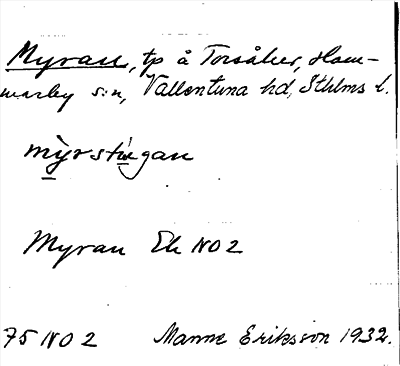 Myran, tp å Torsåker, Ham-
marby sn, Vallentuna hd, Sthlms l.
mỳrstígan
Myran Ek NO 2
75 NO 2 Manne Eriksson 1932.